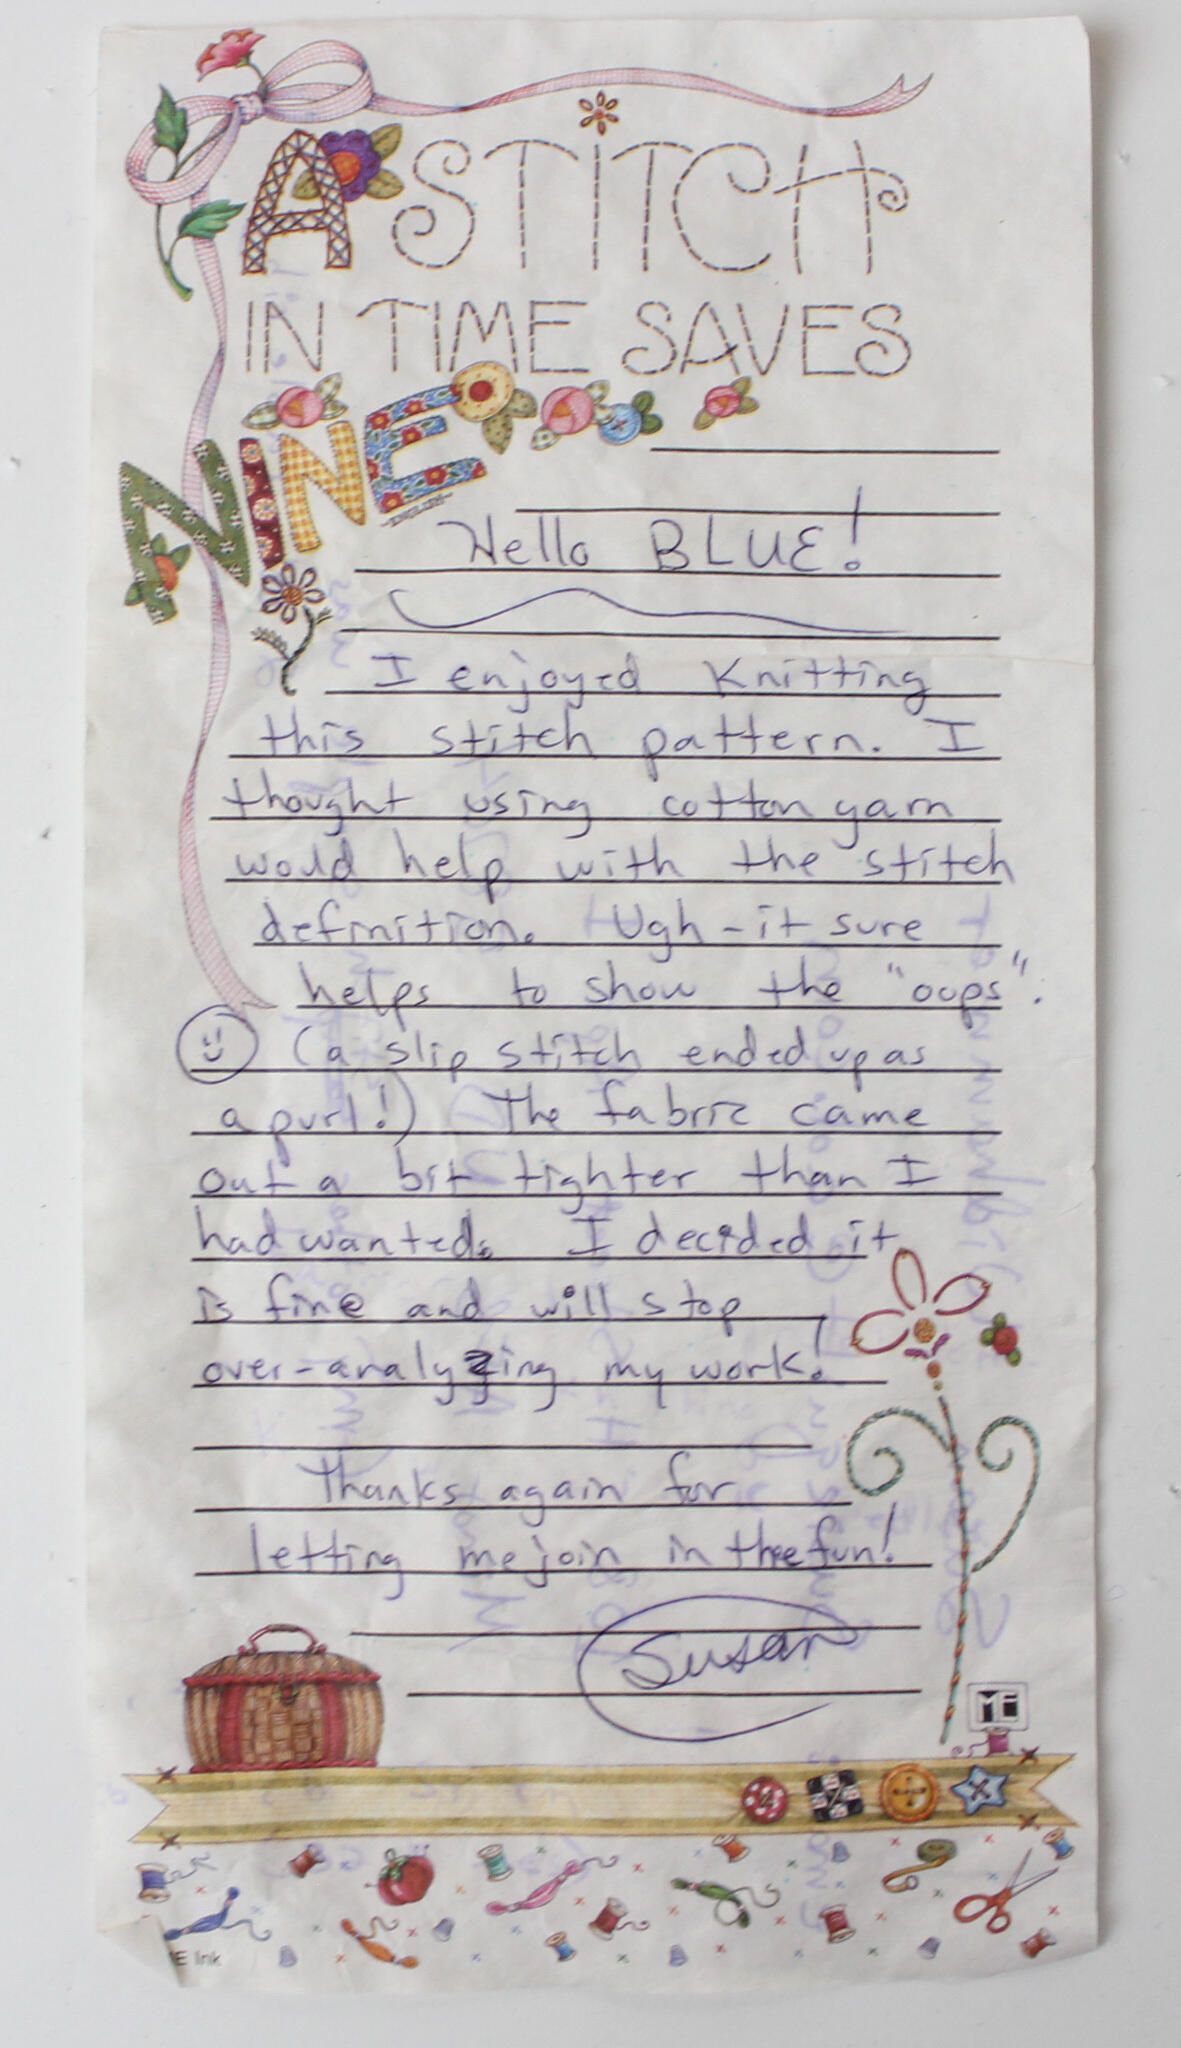 A STITCH
IN TIME SAVES
NINE
~ENGLISH~
Hello BLUE!
I enjoyed Knitting
this stitch pattern. I
thought using cotton yarn
would help with the stitch
definition. Ugh - it sure
helps to show the "oops".
(a slip stitch ended up as
a purl!) The fabric came
out a bit tighter than I
had wanted. I decided it
is fine and will stop
over-analyzing my work!
Thanks again for
letting me join in the fun!
Susan
ME
E Ink